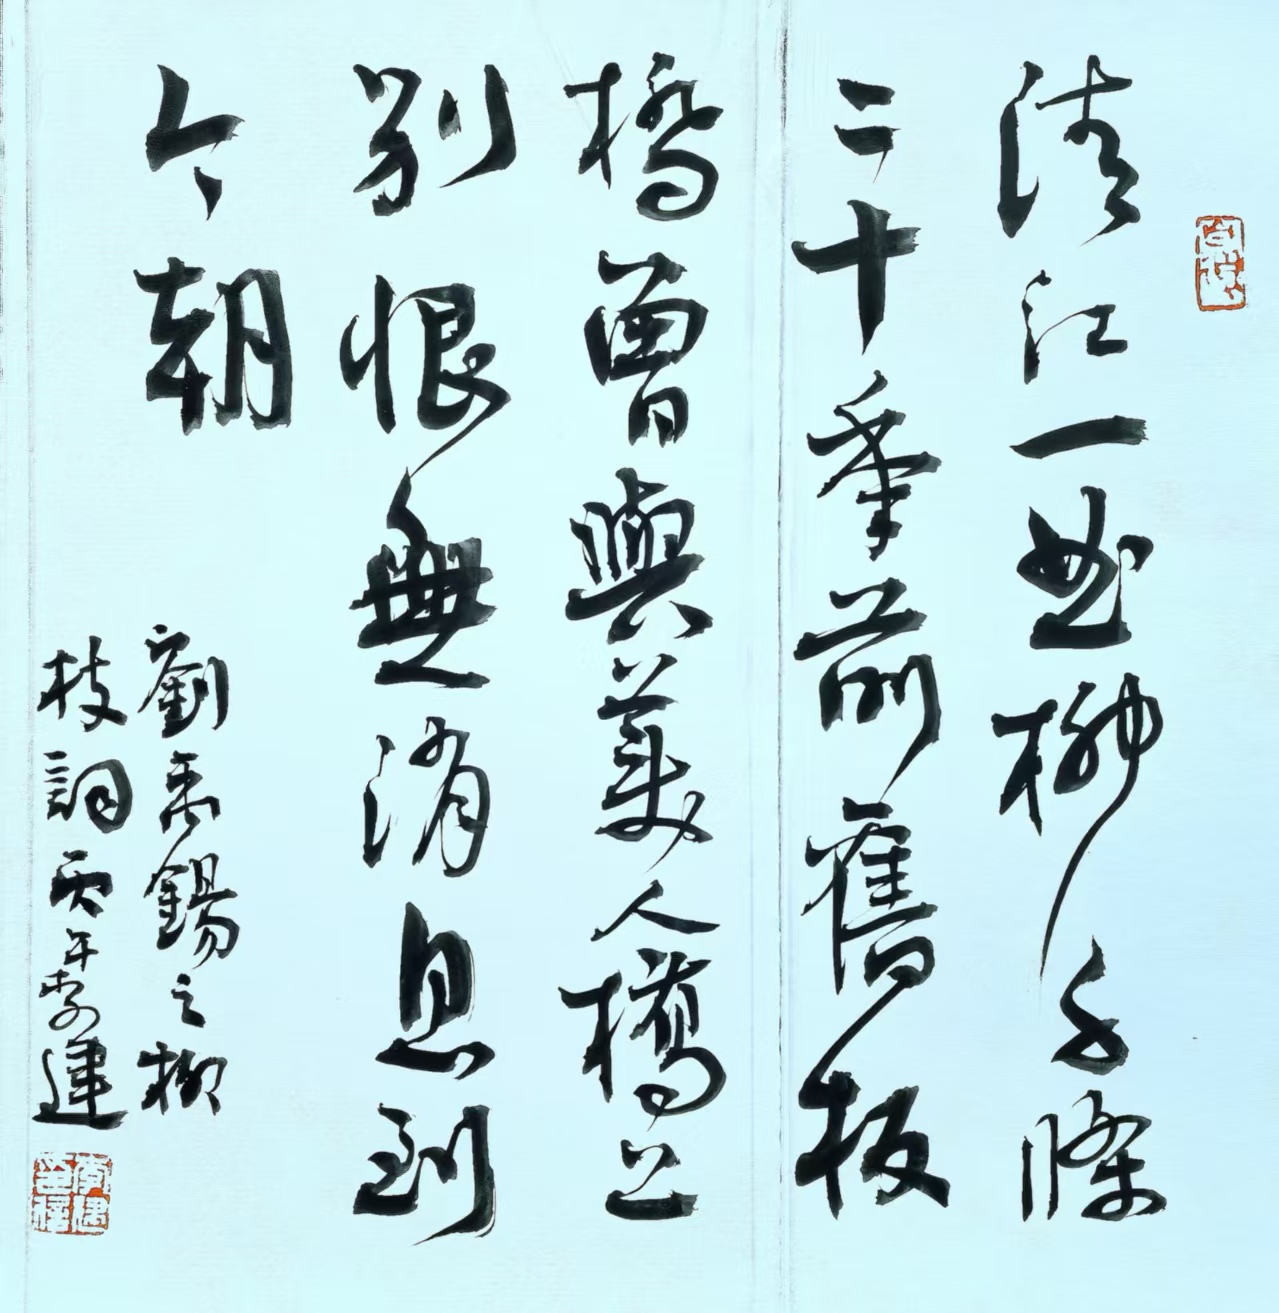 清江一曲柳千條
二十季前舊板
橋曾與美人橋上
別恨無消息到
今朝
劉禹錫之柳
枝詞丙午李建